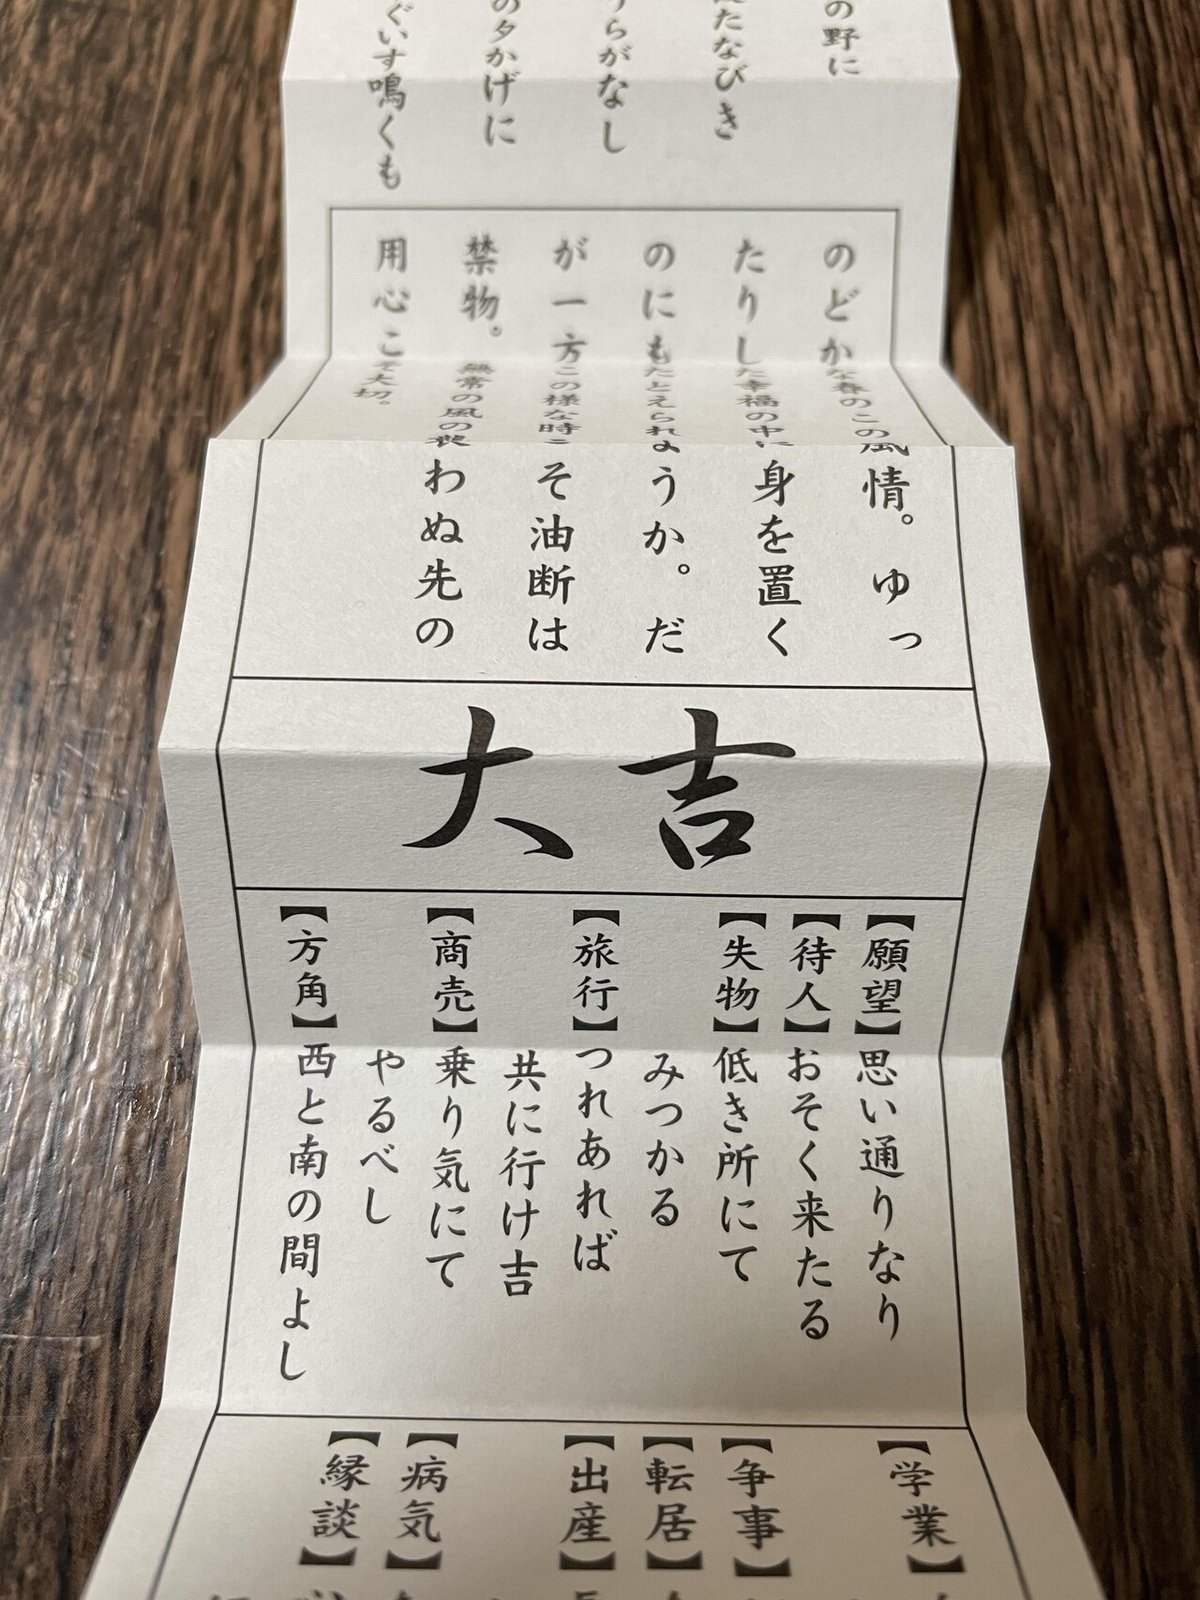 の野に
たなびき
らがなし
の夕かげに
ぐいす鳴くも
のどかな春のこの風情。ゆっ
たりした幸福の中に身を置く
のにもたとえられようか。だ
が一方この様な時こそ油断は
禁物。無常の風の襲わぬ先の
用心こそ大切。
大吉
【願望】思い通りなり
【待人】おそく来たる
【失物】低き所にて
みつかる
【旅行】つれあれば
共に行け吉
【商売】乗り気にて
やるべし
【方角】西と南の間よし
【学業】
【争事】
【転居】
【出産】
【病気】
【縁談】